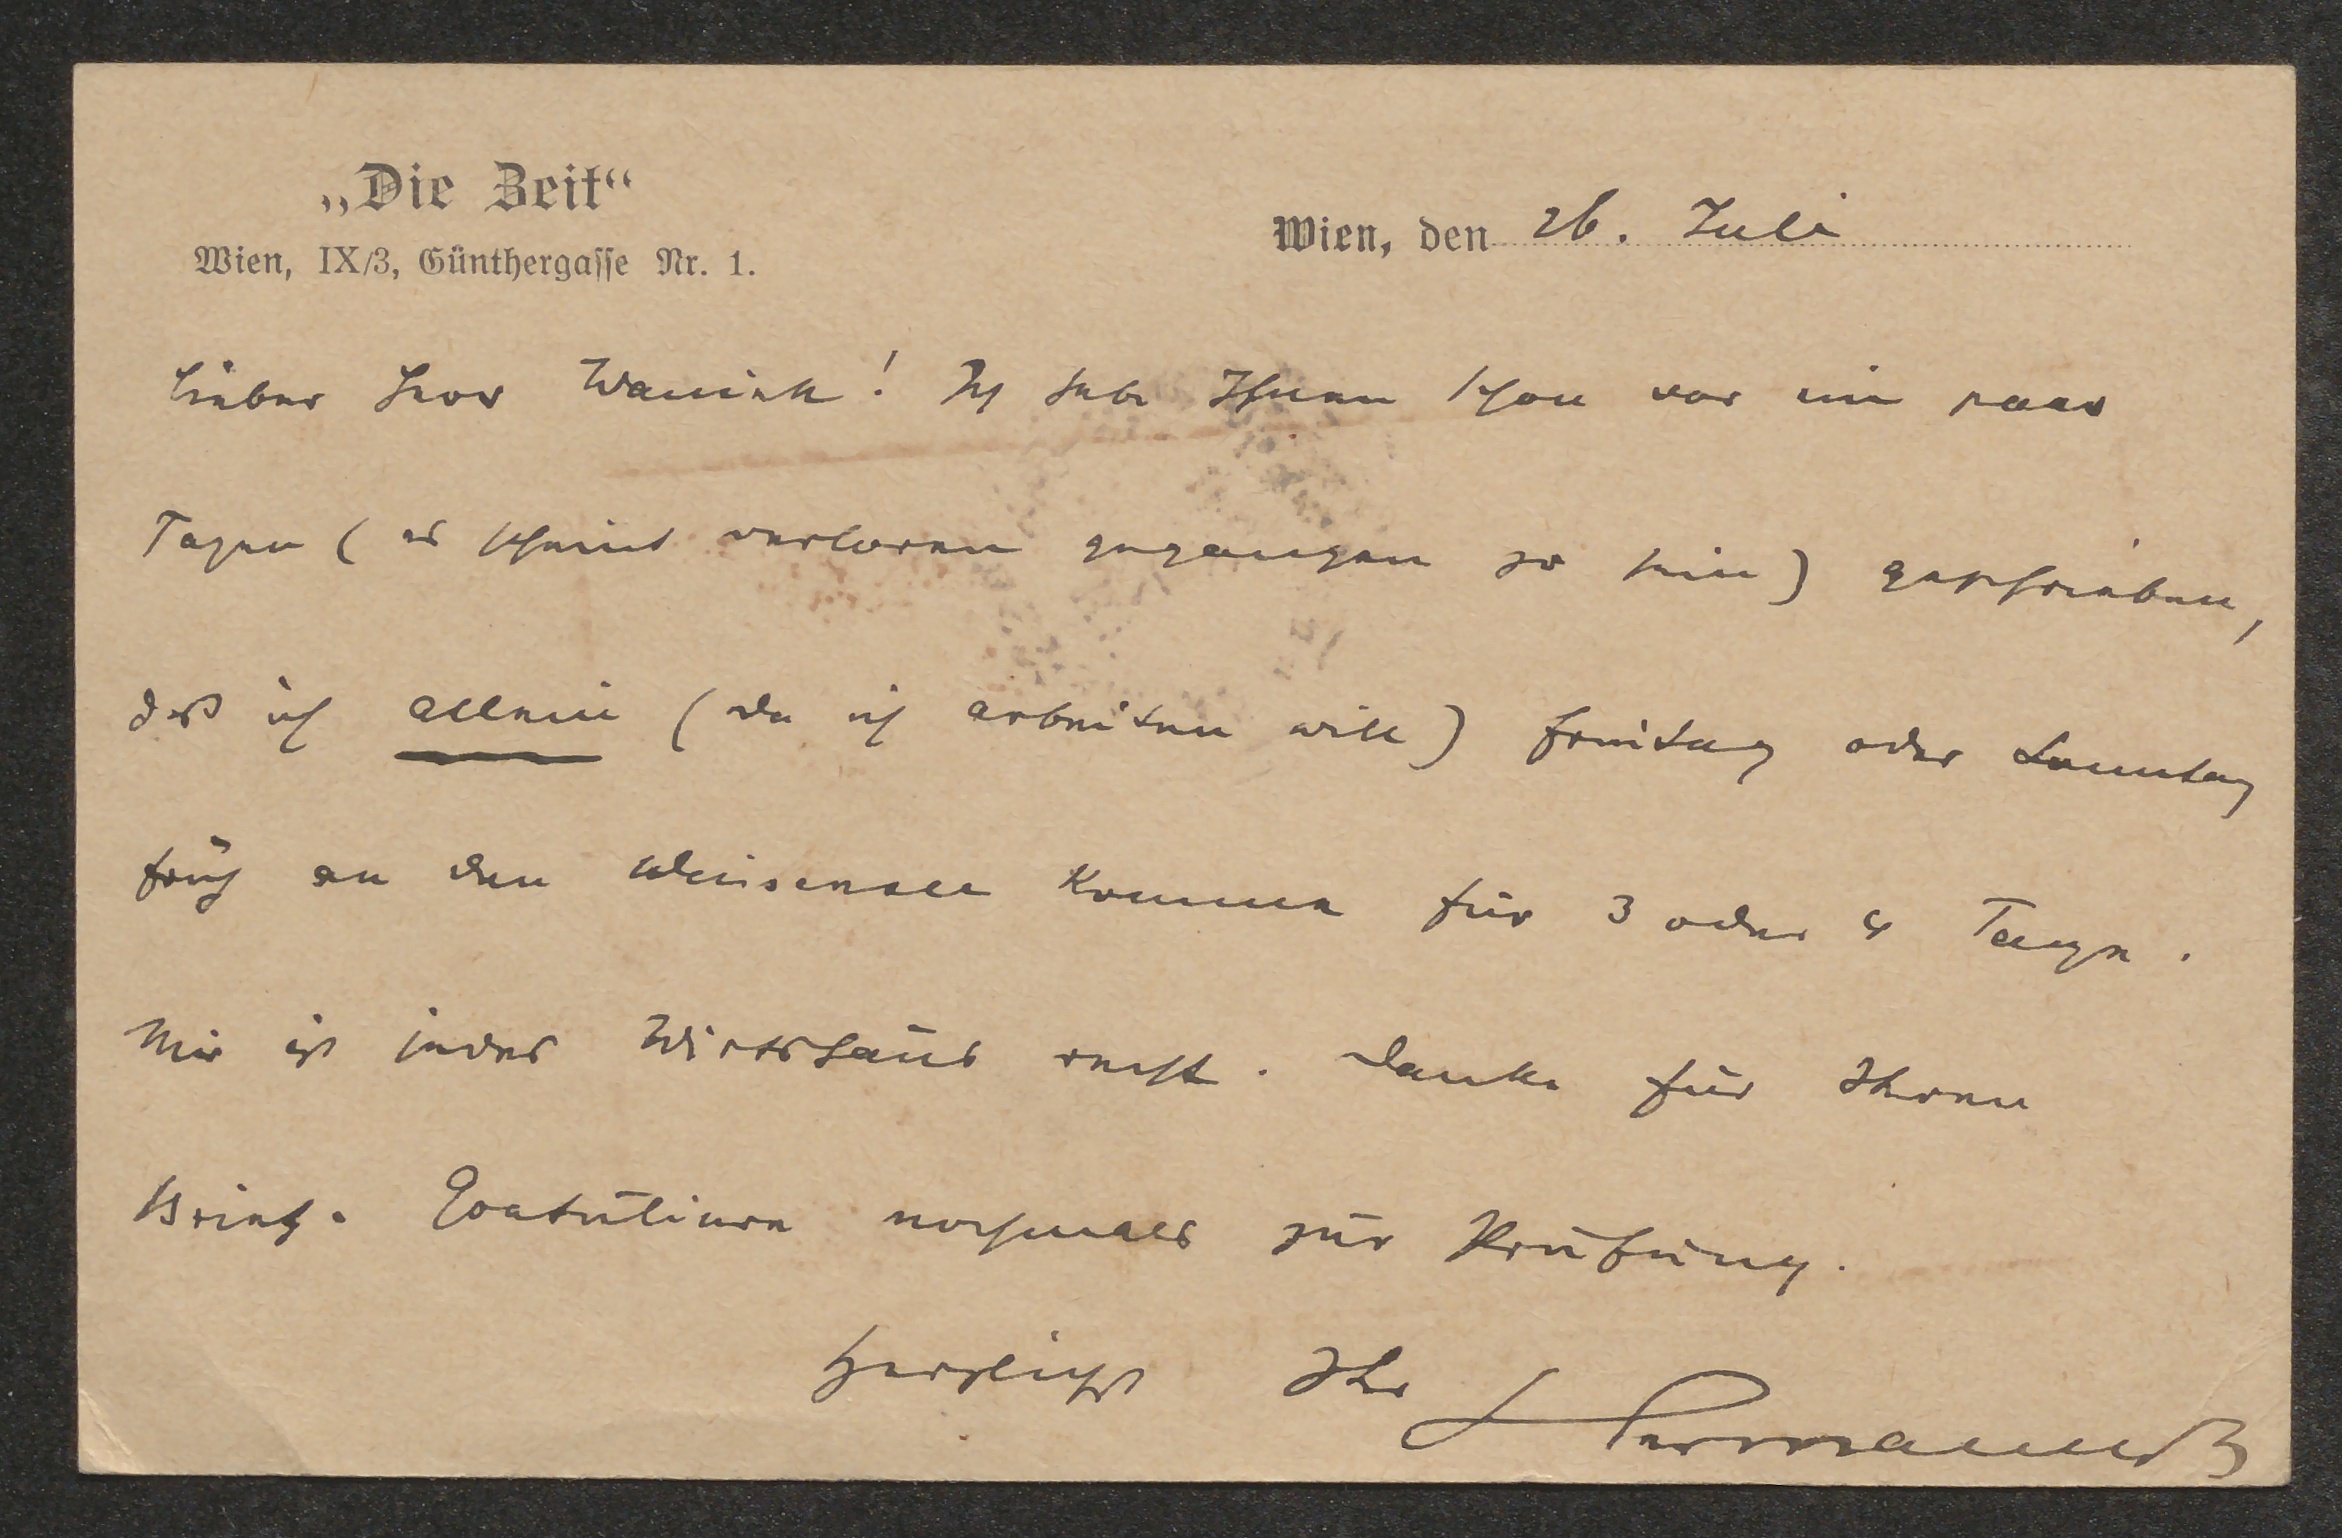 „Die Zeit“
Wien, IX/3, Günthergasse Nr. 1.
Wien, den 26. Juli
Lieber Herr Wanieck! Ich habe Ihnen schon vor ein paar
Tagen (es scheint verloren gegangen zu sein) geschrieben,
daß ich allein (da ich arbeiten will) Freitag oder Sonntag
früh an den Weissensee komme für 3 oder 4 Tage.
Mir ist jedes Wirtshaus recht. Danke für Ihren
Brief. Gratuliere nochmals zur Prüfung.
Herzlichst Ihr
HermannB